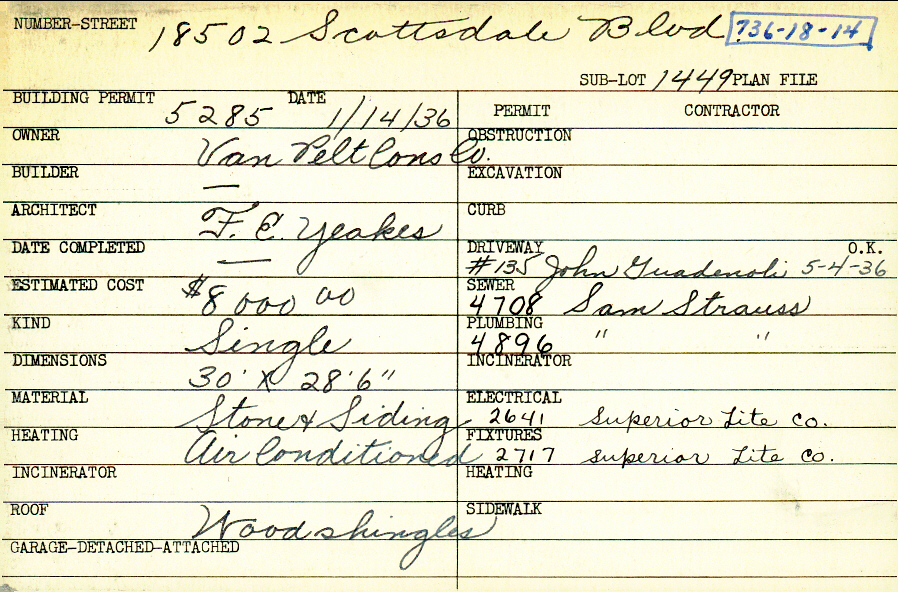 NUMBER-STREET 18502 Scottsdale Blvd 736-18-14
SUB-LOT 1449 PLAN FILE
BUILDING PERMIT 5285 DATE 1/14/36
OWNER Van Pelt Cons Co.
BUILDER —
ARCHITECT F. E. Yeakes
DATE COMPLETED —
ESTIMATED COST $8000 00
KIND Single
DIMENSIONS 30' X 28'6"
MATERIAL Stone & Siding
HEATING Air Conditioned
INCINERATOR
ROOF Wood shingles
GARAGE-DETACHED-ATTACHED
PERMIT CONTRACTOR
OBSTRUCTION
EXCAVATION
CURB
DRIVEWAY O.K.
#135 John Guadenoli 5-4-36
SEWER
4708 Sam Strauss
PLUMBING
4896 " "
INCINERATOR
ELECTRICAL
2641 Superior Lite Co.
FIXTURES
2717 Superior Lite Co.
HEATING
SIDEWALK